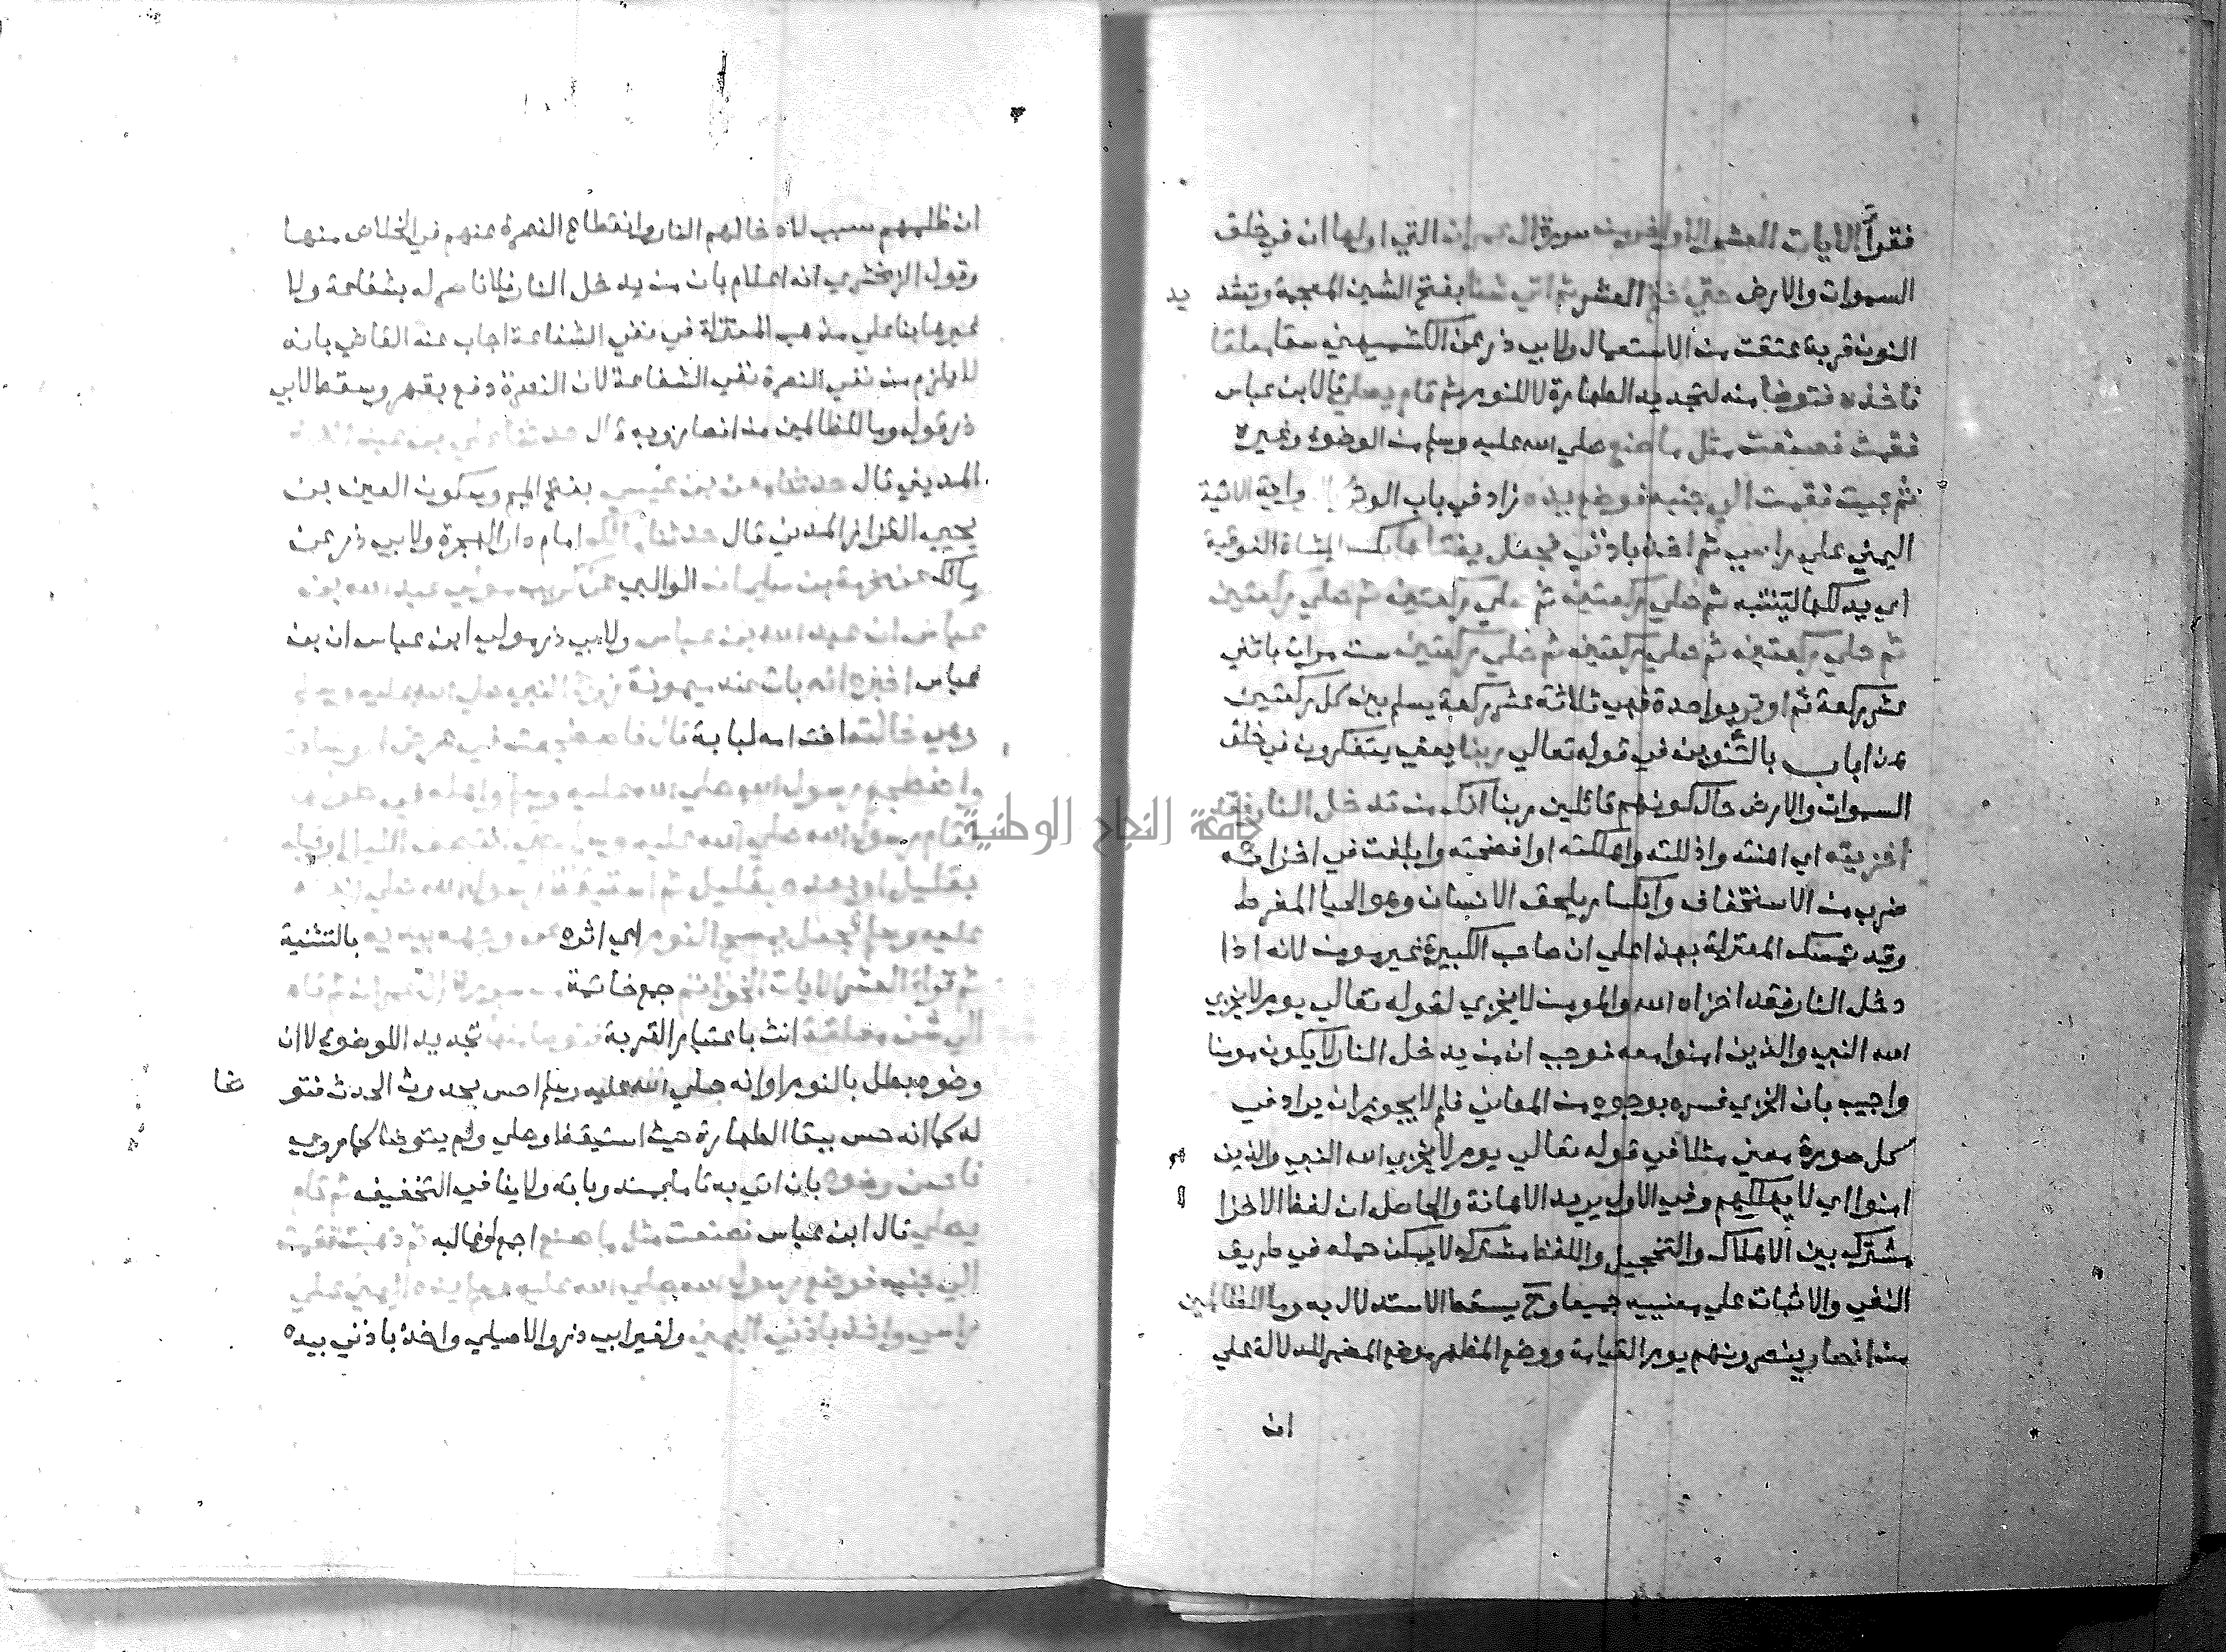 فقرأ الايات العشر الاواخر من سورة ال عمران التي اولها ان في خلق
السموات والارض حتي ختم العشر ثم اتي شنا بفتح الشين المعجمة وتشد يد
النون قربة عتقت من الاستعمال ولابي ذر عن الكشميهني سقا معلقا
فأخذه فتوضأ منه لتجديد الطهارة لا للنوم ثم قام يصلي قال ابن عباس
فقمت فصنعت مثل ما صنع صلي الله عليه وسلم من الوضوء وغيره
ثم جيت فقمت الي جنبه فوضع يده زاد في باب الوتر الاتية
اليمني علي راسي ثم اخذ باذني فجعل يفتلها بكسر المثناة الفوقية
اي يدلكها لتنتبه ثم صلي ركعتين ثم صلي ركعتين ثم صلي ركعتين
ثم صلي ركعتين ثم صلي ركعتين ثم صلي ركعتين ست مرات باثني
عشر ركعة ثم اوتر بواحدة فهي ثلاثة عشر ركعة يسلم بين كل ركعتين
هذا باب بالتنوين في قوله تعالي ربنا يعني يتفكرون في خلق
السموات والارض حال كونهم قائلين ربنا انك من تدخل النار فقد
اخزيته اي اهنته واذللته واهلكته او افضحته وابلغت في اخزائه
ضرب من الاستخفاف وانكسار يلحق الانسان وهو الحيا المفرط
وقد تمسك المعتزلة بهذا علي ان صاحب الكبيرة غير مومن لانه اذا
دخل النار فقد اخزاه الله والمومن لا يخزي لقوله تعالي يوم لا يخزي
الله النبي والذين امنوا معه فوجب ان من يدخل النار لا يكون مومنا
واجيب بان الخزي فسر بوجوه من المعاني فلم لا يجوز ان يراد في
كل صورة معني مثلا في قوله تعالي يوم لا يخزي الله النبي والذين
امنوا اي لا يهلكهم وفي الاول يريد الاهانة والحاصل ان لفظ الاخزا
مشترك بين الاهلاك والتخجيل واللفظ مشترك لا يمكن حمله في طريق
النفي والاثبات علي معنييه جميعا وح يسقط الاستدلال به وما للظالمين
من انصار ينصرونهم يوم القيامة ووضع المظهر موضع المضمر للدلالة علي
ان
ان ظلمهم سبب لادخالهم النار وانقطاع النصرة عنهم في الخلاص منها
وقول الزمخشري انه اعلام بان من يدخل النار فلا ناصر له بشفاعة ولا
غيرها بنا علي مذهب المعتزلة في نفي الشفاعة اجاب عنه القاضي بانه
لا يلزم من نفي النصرة نفي الشفاعة لان النصرة دفع بقهر وسقط لابي
ذر قوله وما للظالمين من انصار وبه قال حدثنا علي بن عبد الله
المديني قال حدثنا معن بن عيسي بفتح الميم وسكون العين بن
يحيي القزاز المدني قال حدثنا مالك امام دار الهجرة ولابي ذر عن
مالك عن مخرمة بن سليمان الوالبي عن كريب مولي عبد الله بن
عباس ان عبد الله بن عباس ولابي ذر مولي ابن عباس ان بن
عباس اخبره انه بات عند ميمونة زوج النبي صلي الله عليه وسلم
وهي خالته اخت امه لبابة قال فاضطجعت في عرض الوسادة
واضطجع رسول الله صلي الله عليه وسلم واهله في طولها
فنام رسول الله صلي الله عليه وسلم حتي انتصف الليل او قبله
بقليل او بعده بقليل ثم استيقظ رسول الله صلي الله
عليه وسلم فجعل يمسح النوم اي اثره عن وجهه بيديه بالتثنية
ثم قرا العشر الايات الخواتم جمع خاتمة من سورة ال عمران ثم قام
الي شن معلقة انث باعتبار القربة فتوضا منها تجديد اللوضوء لا ان
وضوه بطل بالنوم او انه صلي الله عليه وسلم احس بحدوث الحدث فتو ضا
له كما انه حس ببقا الطهارة حيث استيقظ وصلي ولم يتوضا كما روي
فاحسن وضوه بان اتي به تاما بمندوباته ولا ينافي التخفيف ثم قام
يصلي قال ابن عباس فصنعت مثل ما صنع اجمع او غالبه ثم ذهبت فقمت
الي جنبه فوضع رسول الله صلي الله عليه وسلم يده اليمني علي
راسي واخذ باذني اليمني ولغير ابي ذر والاصيلي واخذ باذني بيده
جامعة النجاح الوطنية